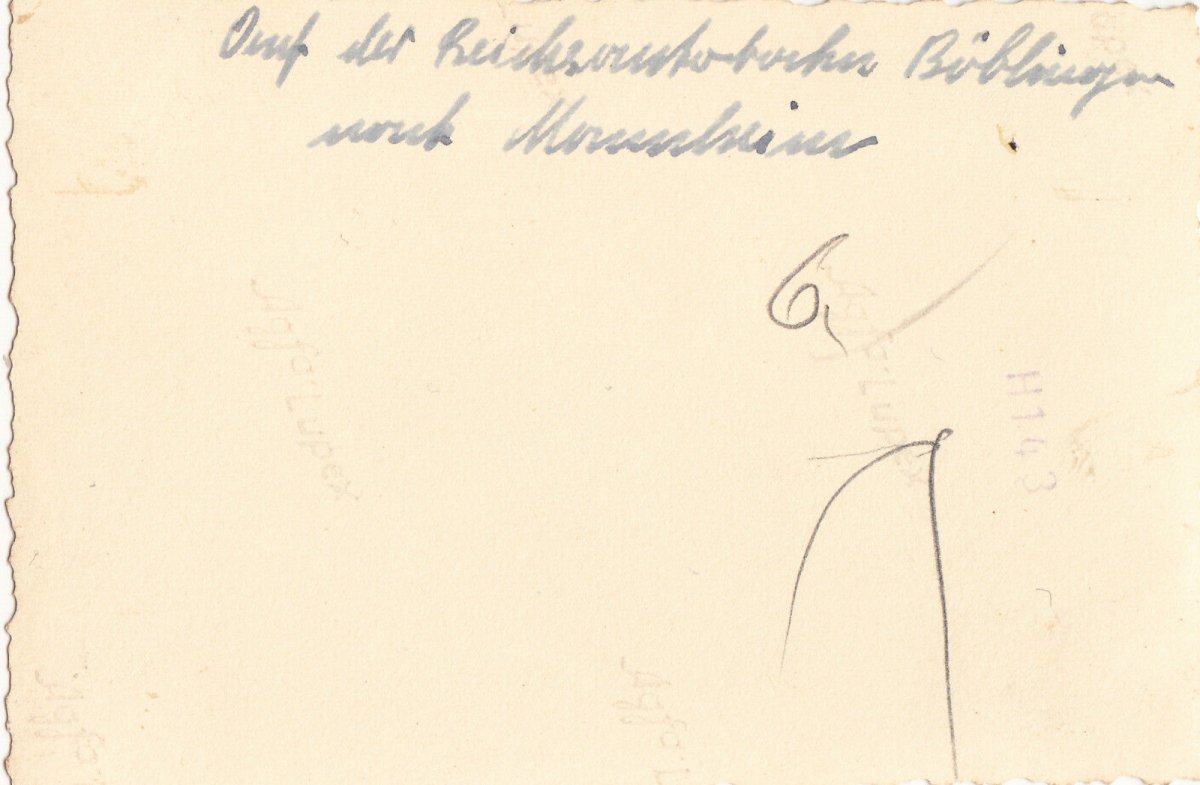 Auf der Reichsautobahn Böblingen
nach Mannheim
6
Agfa-Lupex
Agfa-Lupex
H143
Agfa-
Agfa-L